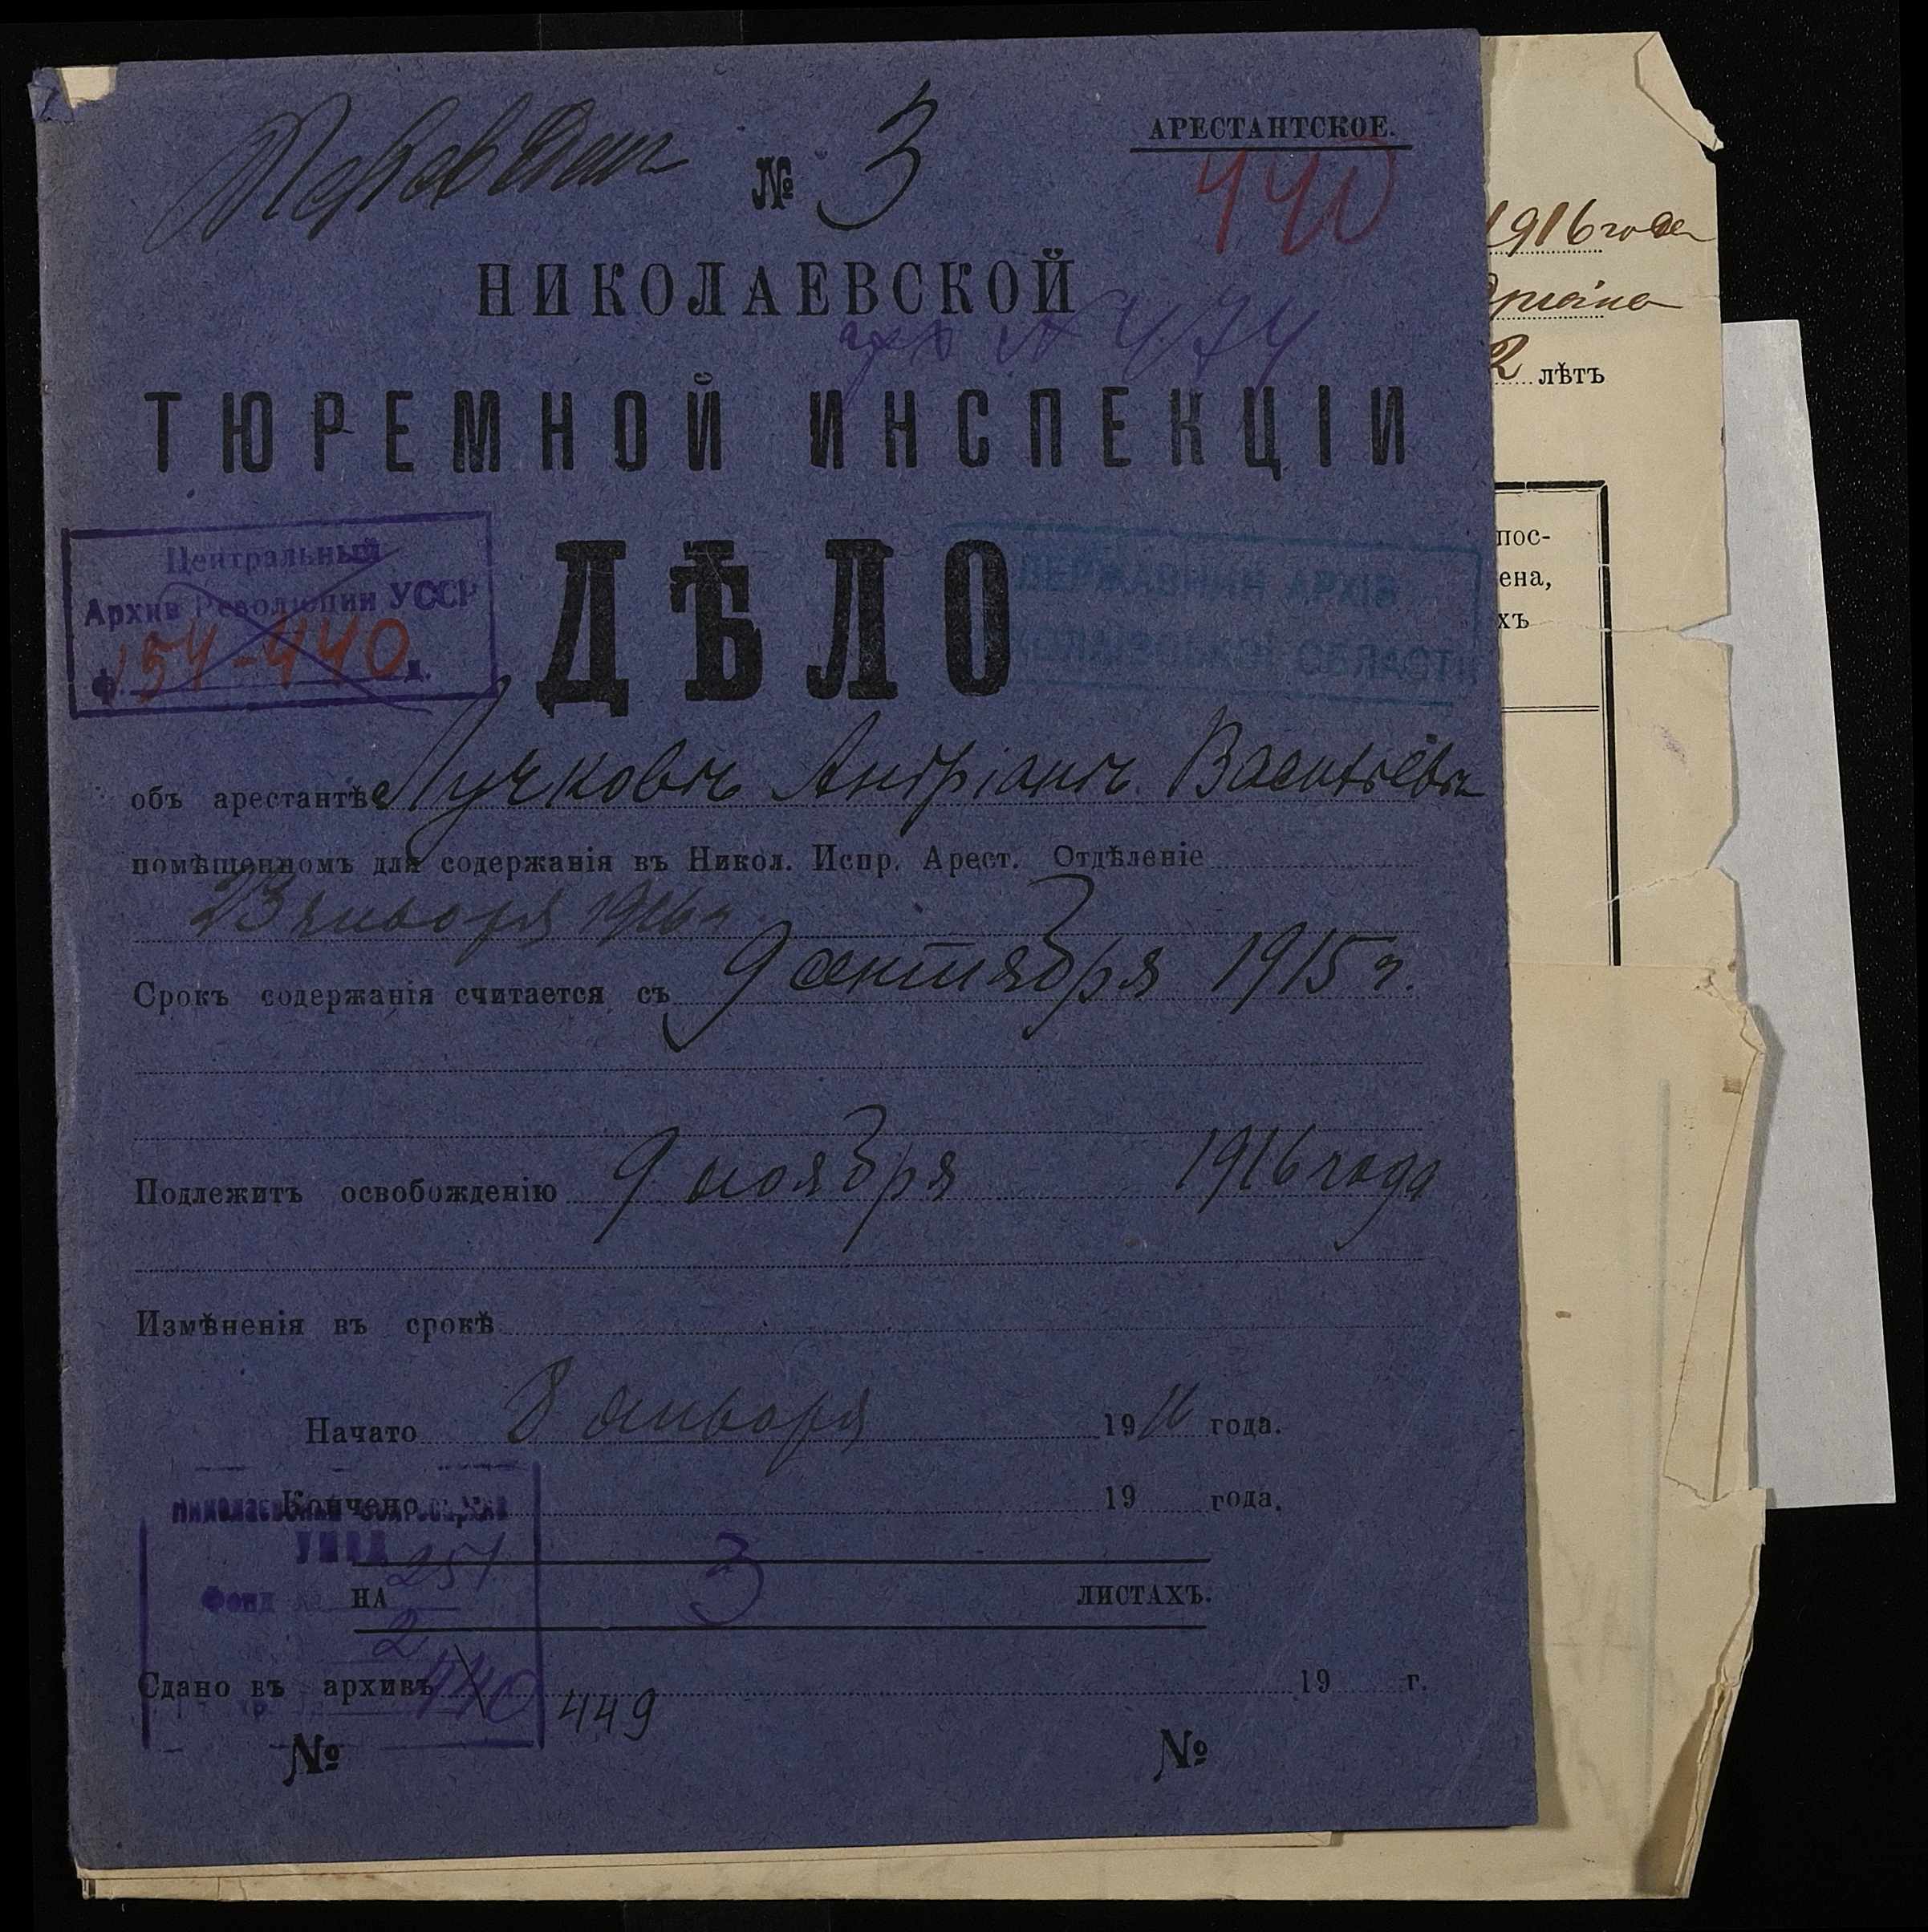 № 3
АРЕСТАНТСКОЕ.
440
НИКОЛАЕВСКОЙ
арх № 474
ТЮРЕМНОЙ ИНСПЕКЦІИ
Центральный
Архив Революции УССР
Ф. 154-440 д.
ДѢЛО
ДЕРЖАВНИЙ АРХІВ
МИКОЛАЇВСЬКОЇ ОБЛАСТІ
объ арестантѣ Лучковъ Андріанъ Васильевъ
помѣщенномъ для содержанія въ Никол. Испр. Арест. Отдѣленіе
23 января 1916 г
Срокъ содержанія считается съ 9 сентября 1915 г.
Подлежитъ освобожденію 9 ноября 1916 года
Измѣненія въ срокѣ
Начато 8 января 1916 года.
Кончено 19 года.
УМВД
Фонд 251
НА 3 ЛИСТАХЪ.
2
Сдано въ архивъ 19 г.
440
449
№ №
1916 года
2 лѣтъ
пос-
ена,
хъ